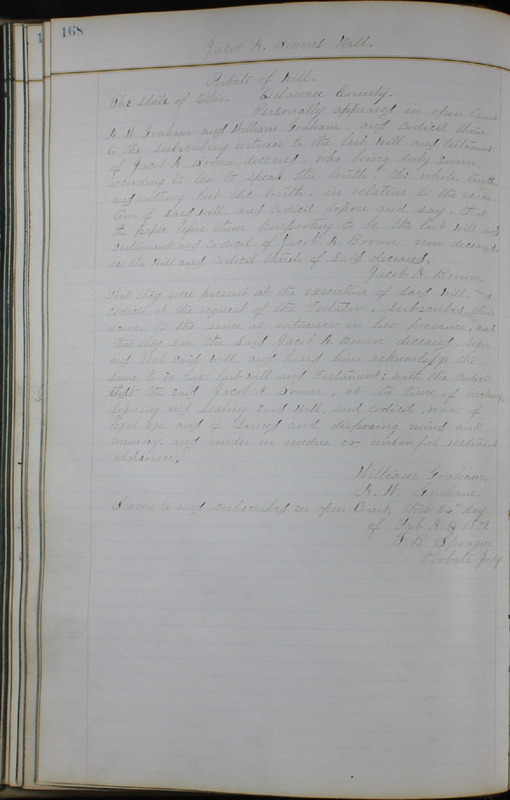 168
Jacob A. Browns Will.
Probate of Will.
The State of Ohio. Delaware County.
Personally appeared in open Court
Graham and William Graham, and codicil
to the subscribing witnesses to the last Will and testament
of Jacob A. Brown deceased, who being duly sworn,
according to law to speak the truth, the whole truth,
and nothing but the truth, in relation to the execu-
tion of said Will, and codicil depose and say, that
the paper before them purporting to be the last Will and
Testament and codicil of Jacob A. Brown now deceased
is the Will and codicil of said deceased,
Jacob A. Brown.
That they were present at the execution of said Will, and
codicil at the request of the Testator, subscribed their
names to the same as witnesses in his presence, and
that they saw the said Jacob A. Brown deceased sign
and seal said Will, and heard him acknowledge the
same to be his last Will and Testament; with the codicil
that the said Jacob A. Brown, at the time of making,
signing and sealing said Will, and codicil, was of
legal age and of sound and disposing mind and
memory and under no undue or unlawful restraint
whatsoever.
William Graham.
Graham
Sworn to and subscribed in open Court, this 26" day
of Feb A.D.
B. Sprague
Probate Judge